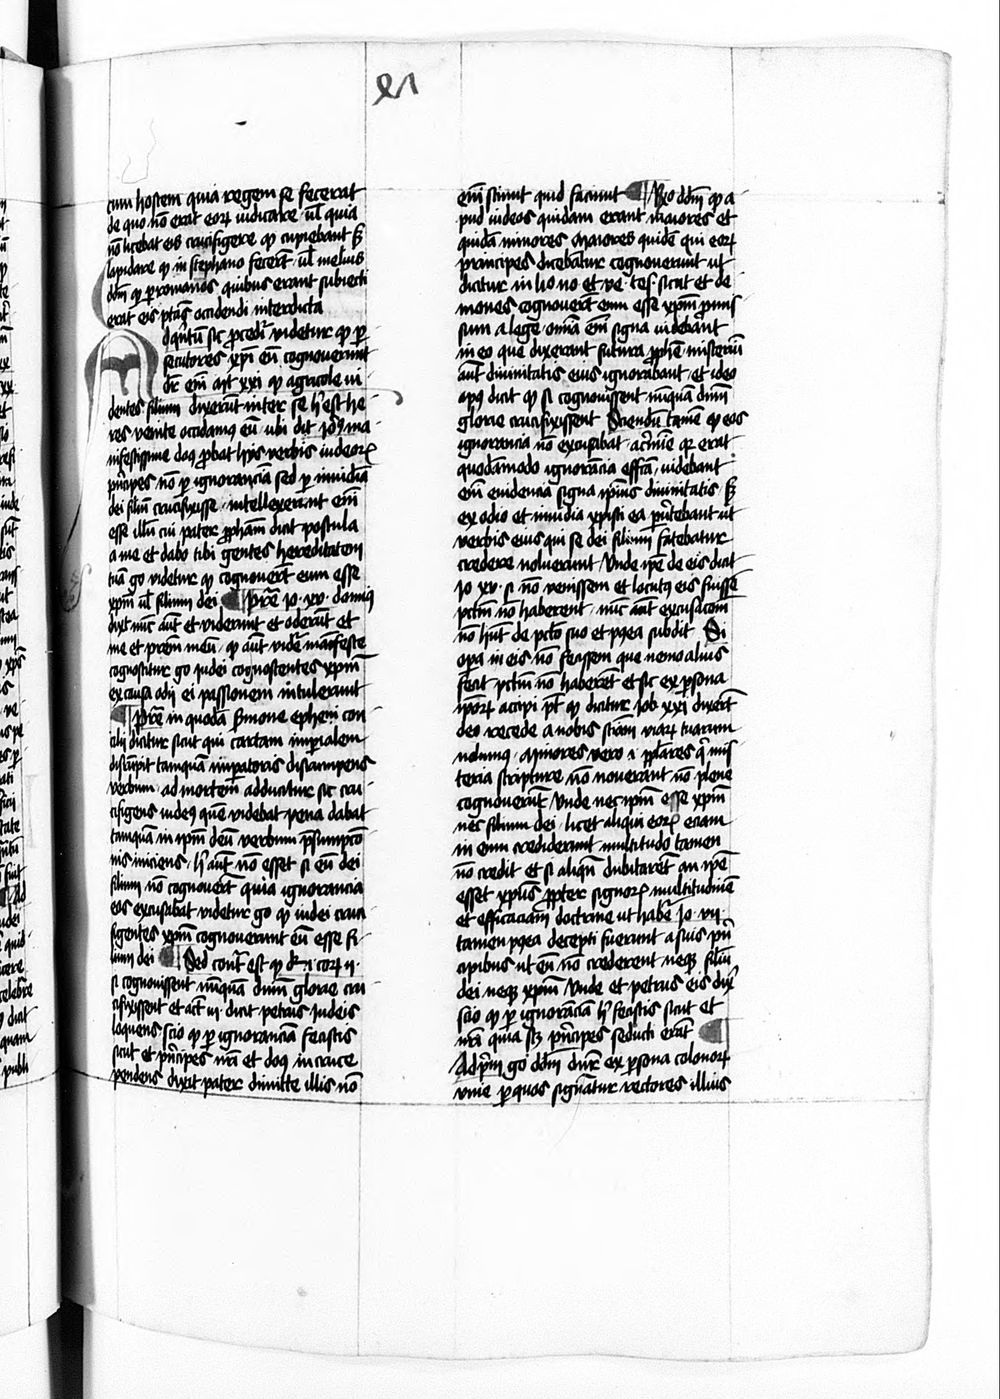 cum hostem quia regem se fecerat
de quo nō erat eoꝝ iudicare · ul̄ quia
nō licebat eis crucifigere qͥ cupiebant sꝫ
lapidare qͥ in stephano fecerūt · ul̄ melius
dd̄m qͥ ꝑ romanos quibus erant subiecti
erat eis ptās occidendi interdicta
Ad qͣrtum sic ꝓcedit̄ videtur qͥ ꝑ
secutores xp̄i eū cognouerunt
dr̄ em̄ mt̄ xxi qͥ agricole vi
dentes filium dixerūt inter se hͥ est he
res venite occidamꝰ eū · ubi dit Jeroꝰ ma
nifestissime doꝫ ꝓbat hijs verbis iudeoꝝ
pͥncipes nō ꝑ ignorancia sed ꝑ inuidiā
dei filiū crucifixisse · intellexerunt em̄
esse illū cui pater ꝓphetam dicit postula
a me et dabo tibi gentes hereditatem
tuā gͦ videtur qͥ cognouerūt eum esse
xpm̄ ul̄ filium dei ¶ Pret̄e Jo · xv · dominꝰ
dixt nūc aūt et viderunt et oderūt et
me et prem̄ meū · qͥ aūt videt̄ manifeste
cognoscitur gͦ iudei cognoscentes xpm̄
ex causa odij ei passionem intulerunt
¶ Pret̄e in quodā sermone ephem̄ con
cilij dicitur sicut qui cartam imperialem
discerpit tamquam imꝑatoris discerpens
verbum · ad mortem adducitur sic cru
cifigens iudeꝰ quē videbat pena dabit
tamquā in ip̄m deū verbum presumpcio
nis iniciens · hͦ aūt nō esset si eū dei
filium nō cognouerūt quia ignorancia
eos excusabat videtur gͦ qͥ iudei cruci
figentes xpm̄ cognouerunt eū esse fi
lium dei ¶ Sed contͣ est qͥ dr̄ · i · coꝝ ii ·
si cognouissent nūquā dnm̄ glorie cru
cifixissent et act̄ iii dicit petrus iudeis
loquens scio qͥ ꝑ ignoranciā fecistis
sicut et pͥncipes vr̄i et doꝫ in cruce
pendens dixit pater dimitte illis nō
em̄ sciunt quid faciunt ¶ Rn̄o dd̄m qͥ a
pud iudeos quidam erant maiores et
quidā minores maiores quidē qui eoꝝ
principes dicebātur cognouerunt ut
dicitur in lio · no et ve · tes · sicut et de
mones cognouert̄ eum esse xpm̄ ꝓmis
sum a lege omīa em̄ signa videbant
in eo que dixerant futura ꝓphe · misteriū
aūt diuinitatis eius ignorabant · et ideo
apꝰ dicit qͥ si cognouissent nūquā dnm̄
glorie crucifixissent Sciendū tamē qͥ eos
ignorancia nō excusabat · a crīmīe qꝛ erat
quodāmodo ignorācia effcāta · videbant
em̄ euidencia signa ip̄ius diuinitatis sꝫ
ex odio et inuidia xpisti ea ꝑuertebant ut
verbis eius qui se dei filium fatebatur
credere noluerunt · Unde ip̄e de eis dicit
Jo xv · si nō venissem et locutꝰ eis fuissē
pctm̄ nō haberent · nūc aūt excusacōem
nō hn̄t de pctō suo et pꝰea subdit Si
opera in eis nō fecissem que nemo alius
fecit · pctm̄ nō haberēt et sic ex ꝑsona
ip̄oꝝ accipi pt̄ qͥ dicitur Job xxi dixerūt
deo recede a nobis sciam viaꝝ tuarum
nolumꝰ · minores vero · i · pplāres qͥ mis
teria scripture nō nouerant nō plene
cognouerūt Unde nec ip̄m esse xpm̄
nec filium dei · licet aliqui eoꝝ eciam
in eum crediderunt · multitudo tamen
nō credit et si aliqn̄ dubitarēt an ip̄e
esset xp̄us ꝓpter signoꝝ multitudinē
et efficaciam doctrine ut habet̄ Jo · vii ·
tamen pꝰea decepti fuerunt a suis pn̄
cipibus ut eū nō crederent neqꝫ filiū
dei neqꝫ xpm̄ Unde et petrus eis dixͭ
scio qͥ ꝑ ignoranciā hͦ fecistis sicut et
vr̄i quia scꝫ pͥncipes seducti erāt ¶
Ad pͥm gͦ dd̄m dicūt̄ ex ꝑsona colonoꝝ
vinie ꝑ quos signātur rectores illius